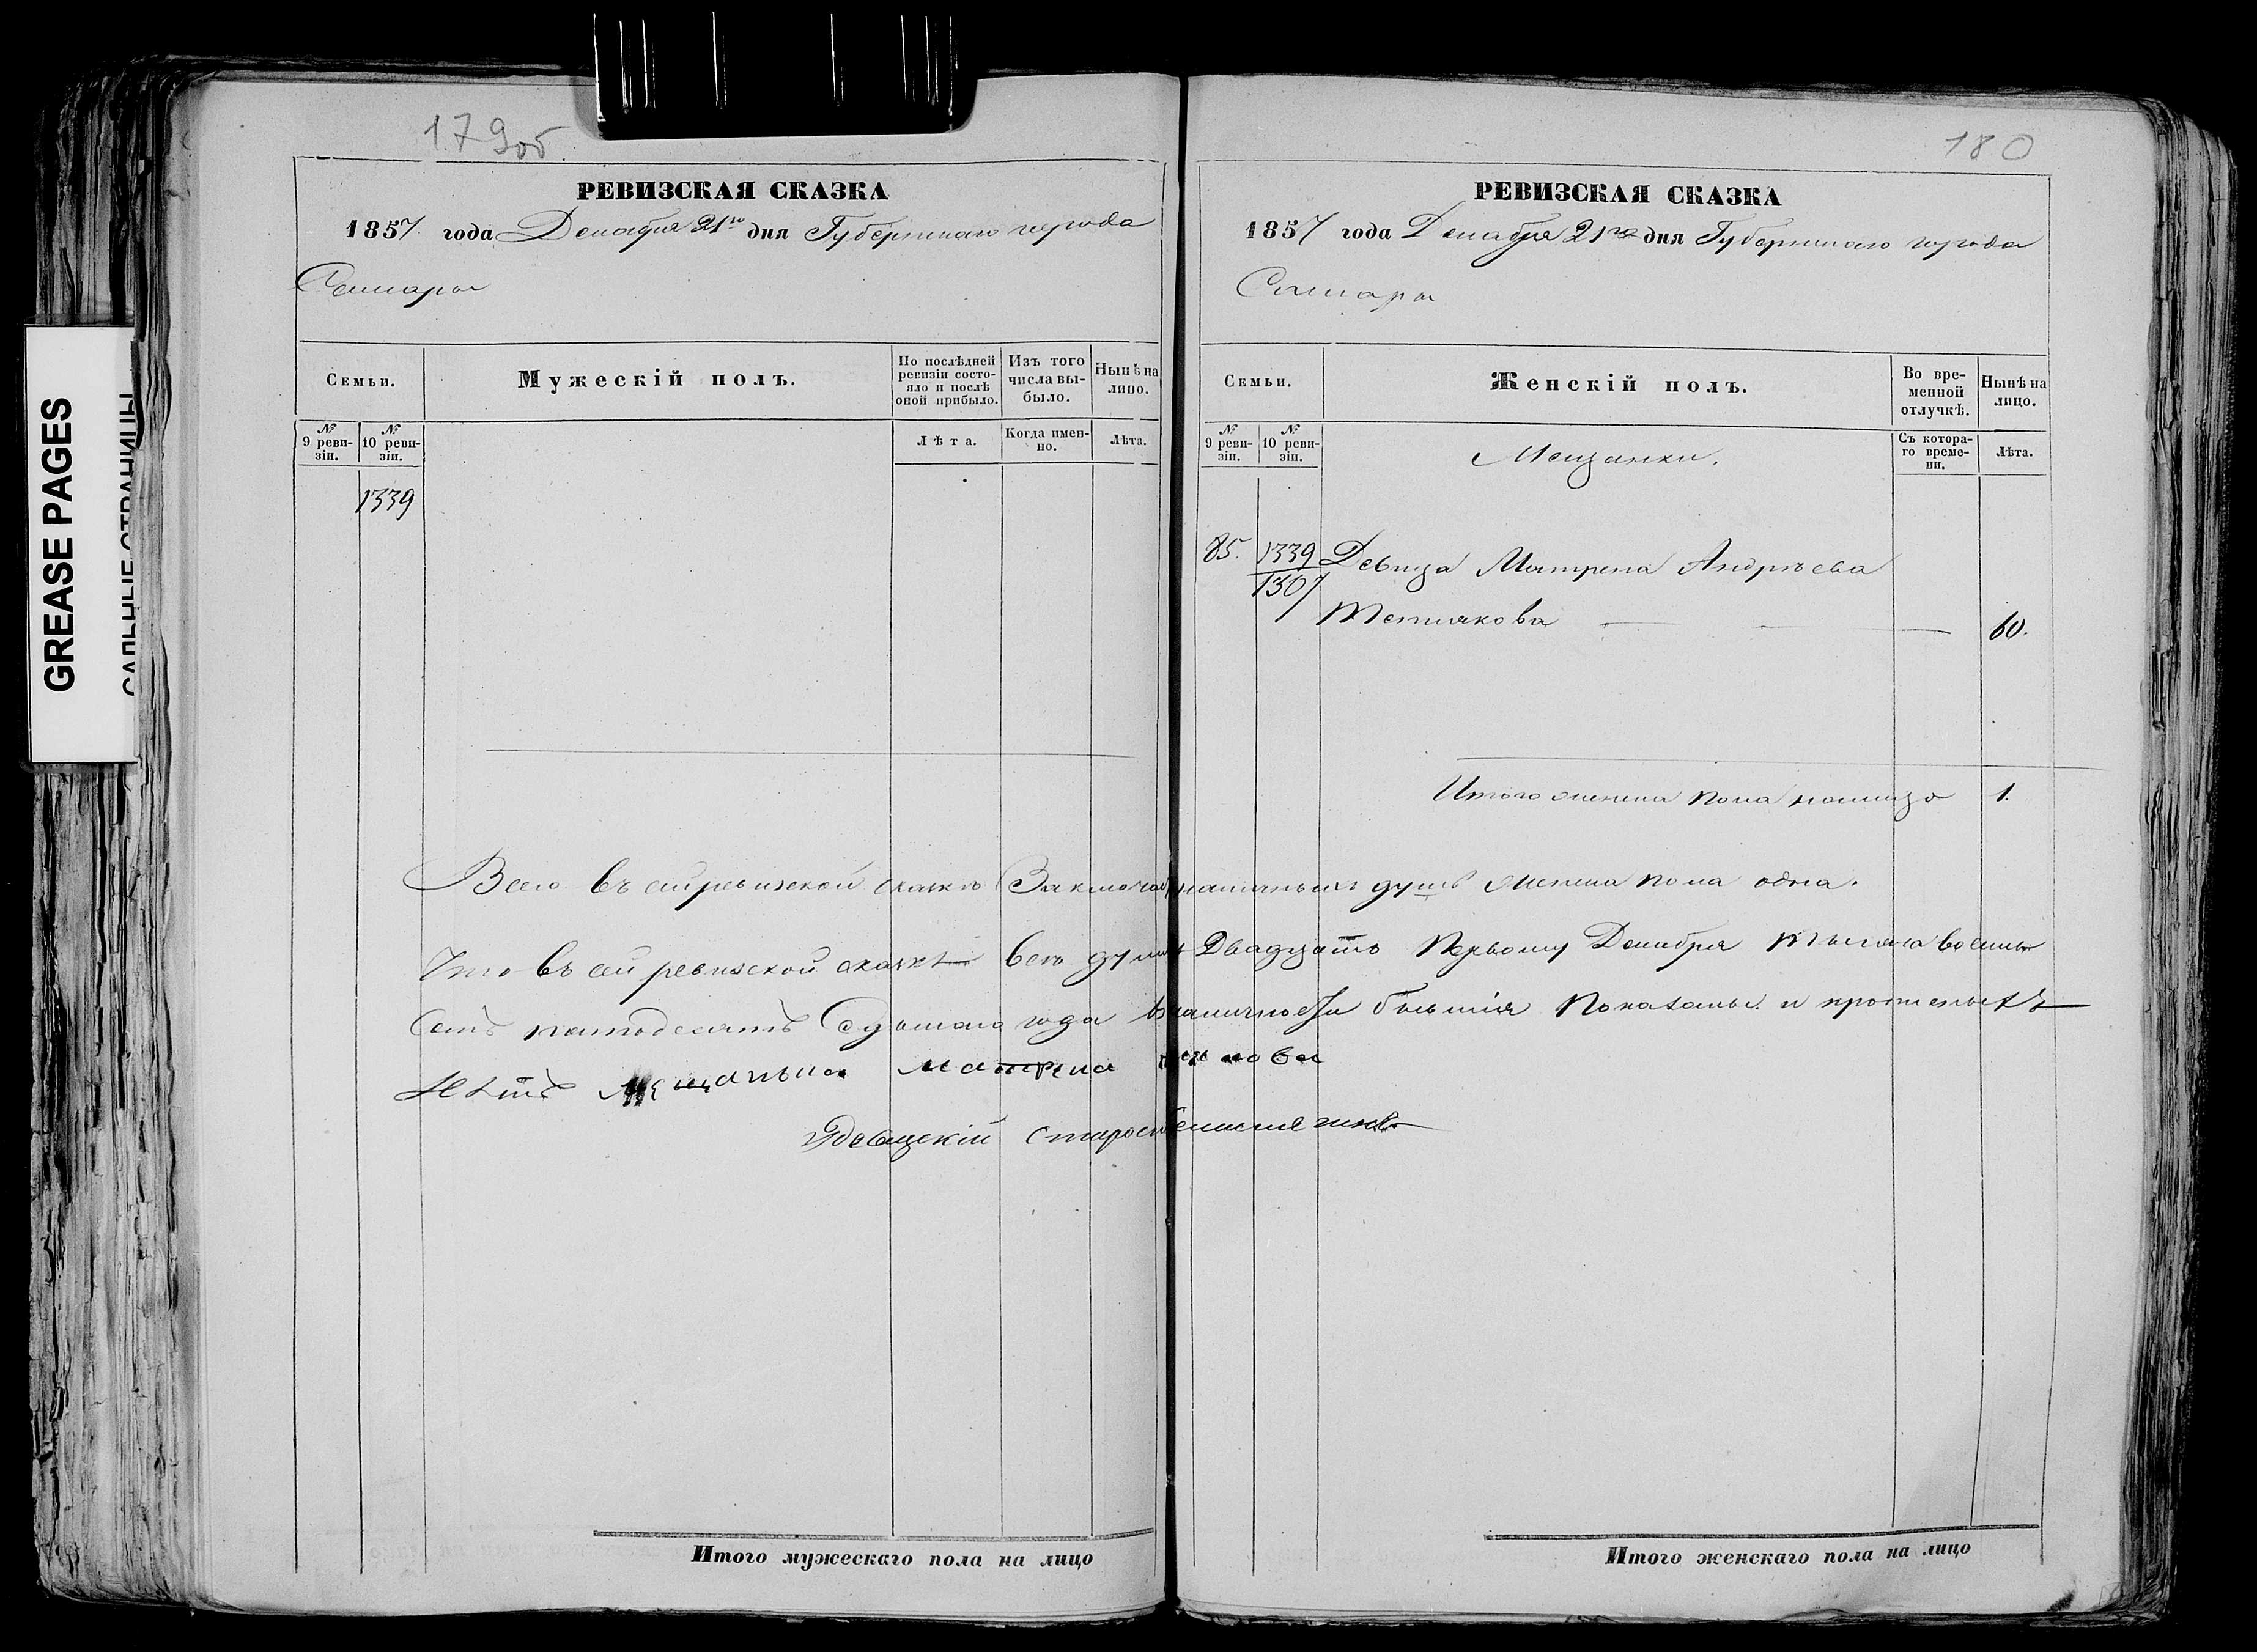 GREASE PAGES
САЛЬНЫЕ СТРАНИЦЫ
179об.
РЕВИЗСКАЯ СКАЗКА
1857 года Декабря 21го дня Губернскаго города
Самары
Семьи.
Мужескій полъ.
По послѣдней ревизіи состояло и послѣ оной прибыло.
Изъ того числа выбыло.
Нынѣ на лицо.
№ 9 ревизіи.
№ 10 ревизіи.
Лѣта.
Когда именно.
Лѣта.
1339
180
РЕВИЗСКАЯ СКАЗКА
1857 года Декабря 21го дня Губернскаго города
Самары
Семьи.
Женскій полъ.
Во временной отлучкѣ.
Нынѣ на лицо.
№ 9 ревизіи.
№ 10 ревизіи.
Мещанки.
Съ котораго времени.
Лѣта.
85. 1339 Девица Матрена Андрѣева
1307
60.
Итого женска пола налицо 1.
Всего въ сей ревизской сказкѣ наличныхъ душъ женска пола одна.
Что въ сей ревизской сказкѣ все души Двадцать Первому Декабря тысяча восемь
сотъ пятьдесятъ Седьмаго года въ наличности бывшія Показаны и
нѣтъ Мещанька Матрена
Итого мужескаго пола на лицо
Итого женскаго пола на лицо